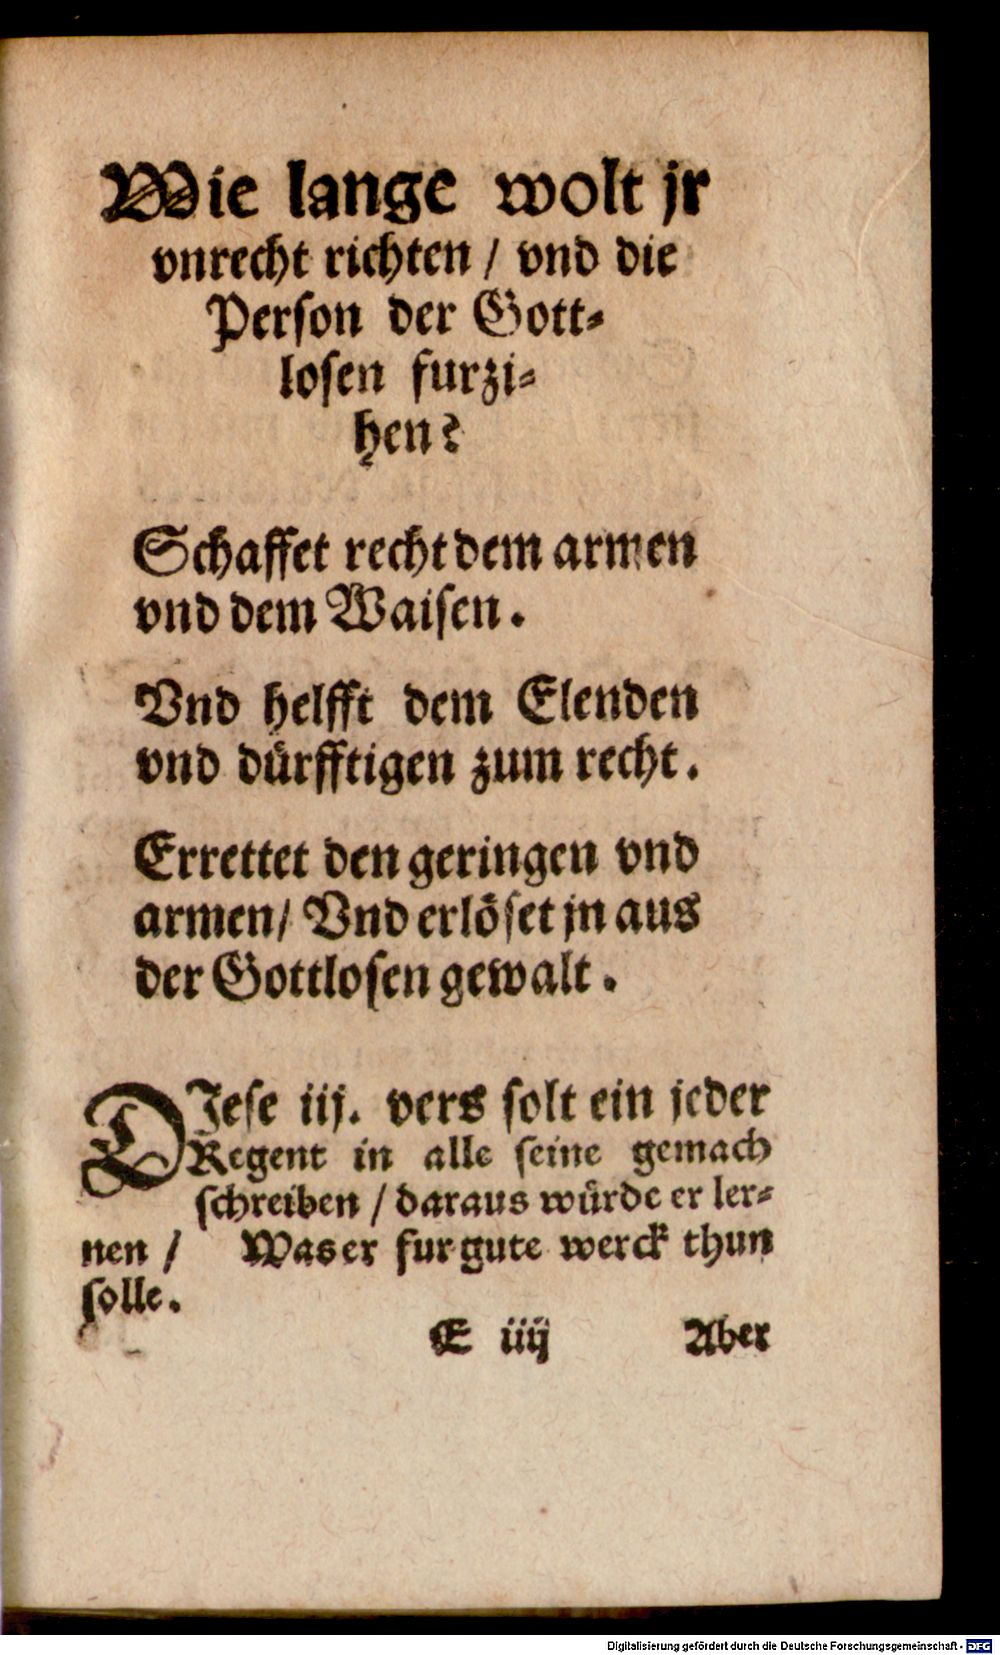 Wie lange wolt jr
vnrecht richten / vnd die
Person der Gott⸗
losen furzi⸗
hen?
Schaffet recht dem armen
vnd dem Waisen.
Vnd helfft dem Elenden
vnd dürfftigen zum recht.
Errettet den geringen vnd
armen/ Vnd erlöset jn aus
der Gottlosen gewalt.
DIese iij. vers solt ein jeder
Regent in alle seine gemach
schreiben / daraus würde er ler⸗
nen / Was er fur gute werck thun
solle.
E iiij Aber
Digitalisierung gefördert durch die Deutsche Forschungsgemeinschaft - DFG